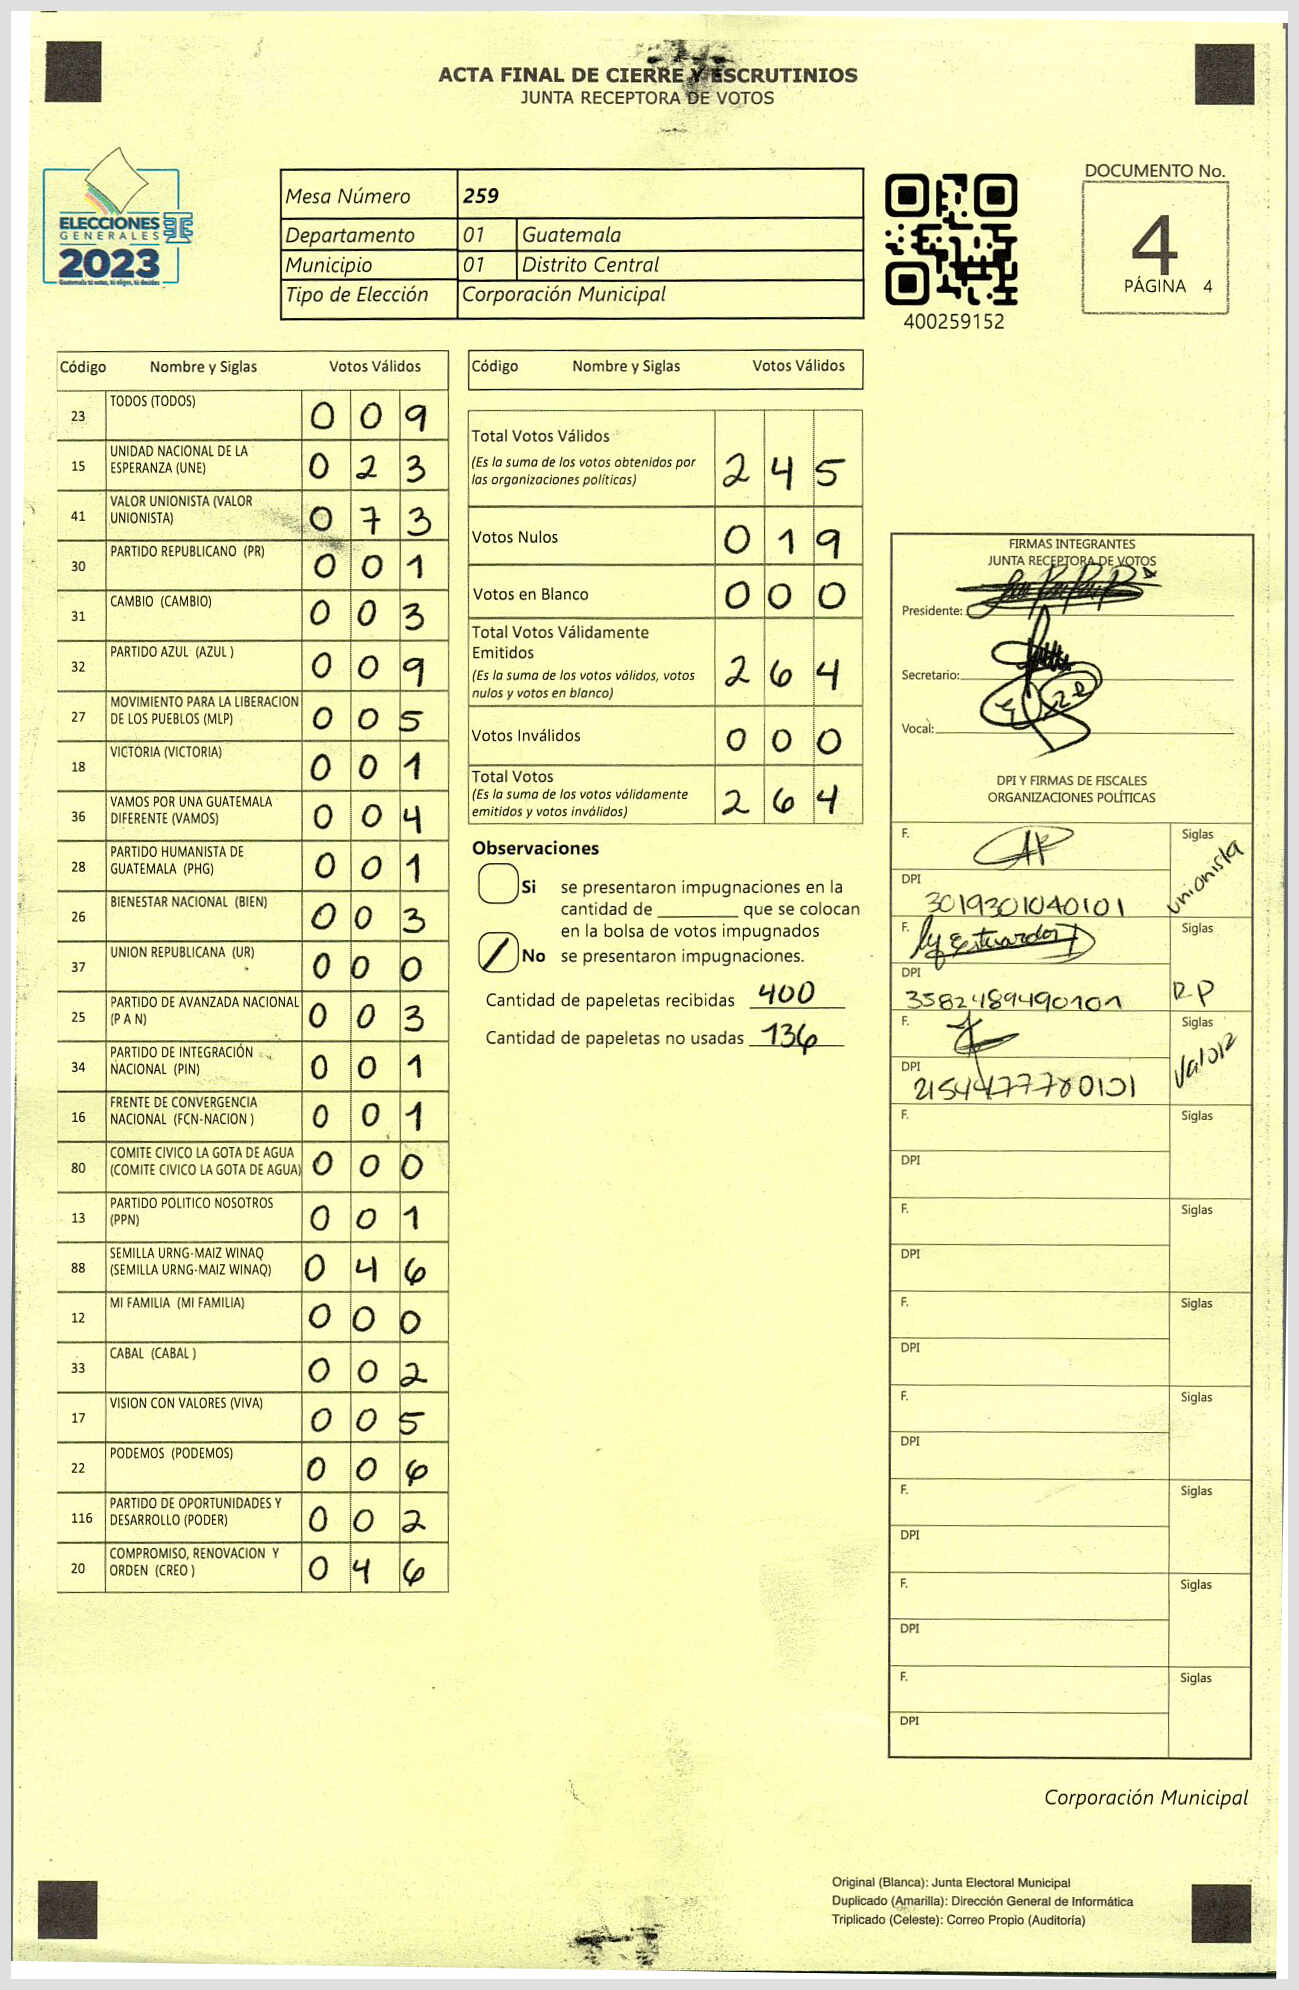 ACTA FINAL DE CIERRE Y ESCRUTINIOS
JUNTA RECEPTORA DE VOTOS
ELECCIONES
GENERALES
2023
Mesa Número 259
Departamento 01 Guatemala
Municipio 01 Distrito Central
Tipo de Elección Corporación Municipal
400259152
DOCUMENTO No.
4
PÁGINA 4
Código Nombre y Siglas Votos Válidos
23 TODOS (TODOS) 0 0 9
15 UNIDAD NACIONAL DE LA
ESPERANZA (UNE) 0 2 3
41 VALOR UNIONISTA (VALOR
UNIONISTA) 0 7 3
30 PARTIDO REPUBLICANO (PR) 0 0 1
31 CAMBIO (CAMBIO) 0 0 3
32 PARTIDO AZUL (AZUL ) 0 0 9
27 MOVIMIENTO PARA LA LIBERACION
DE LOS PUEBLOS (MLP) 0 0 5
18 VICTORIA (VICTORIA) 0 0 1
36 VAMOS POR UNA GUATEMALA
DIFERENTE (VAMOS) 0 0 4
28 PARTIDO HUMANISTA DE
GUATEMALA (PHG) 0 0 1
26 BIENESTAR NACIONAL (BIEN) 0 0 3
37 UNION REPUBLICANA (UR) 0 0 0
25 PARTIDO DE AVANZADA NACIONAL
(P A N) 0 0 3
34 PARTIDO DE INTEGRACIÓN
NACIONAL (PIN) 0 0 1
16 FRENTE DE CONVERGENCIA
NACIONAL (FCN-NACION ) 0 0 1
80 COMITE CIVICO LA GOTA DE AGUA
(COMITE CIVICO LA GOTA DE AGUA) 0 0 0
13 PARTIDO POLITICO NOSOTROS
(PPN) 0 0 1
88 SEMILLA URNG-MAIZ WINAQ
(SEMILLA URNG-MAIZ WINAQ) 0 4 6
12 MI FAMILIA (MI FAMILIA) 0 0 0
33 CABAL (CABAL ) 0 0 2
17 VISION CON VALORES (VIVA) 0 0 5
22 PODEMOS (PODEMOS) 0 0 6
116 PARTIDO DE OPORTUNIDADES Y
DESARROLLO (PODER) 0 0 2
20 COMPROMISO, RENOVACION Y
ORDEN (CREO ) 0 4 6
Código Nombre y Siglas Votos Válidos
Total Votos Válidos
(Es la suma de los votos obtenidos por
las organizaciones políticas) 2 4 5
Votos Nulos 0 1 9
Votos en Blanco 0 0 0
Total Votos Válidamente
Emitidos
(Es la suma de los votos válidos, votos
nulos y votos en blanco) 2 6 4
Votos Inválidos 0 0 0
Total Votos
(Es la suma de los votos válidamente
emitidos y votos inválidos) 2 6 4
Observaciones
Si se presentaron impugnaciones en la
cantidad de ________ que se colocan
en la bolsa de votos impugnados
No se presentaron impugnaciones.
Cantidad de papeletas recibidas 400
Cantidad de papeletas no usadas 136
FIRMAS INTEGRANTES
JUNTA RECEPTORA DE VOTOS
Presidente:
Secretario:
Vocal:
DPI Y FIRMAS DE FISCALES
ORGANIZACIONES POLÍTICAS
F. Siglas
unionista
DPI
3019301040101
F. Siglas
DPI
3582489490101 RP
F. Siglas
Valor
DPI
F. Siglas
DPI
F. Siglas
DPI
F. Siglas
DPI
F. Siglas
DPI
F. Siglas
DPI
F. Siglas
DPI
F. Siglas
DPI
Corporación Municipal
Original (Blanca): Junta Electoral Municipal
Duplicado (Amarilla): Dirección General de Informática
Triplicado (Celeste): Correo Propio (Auditoría)